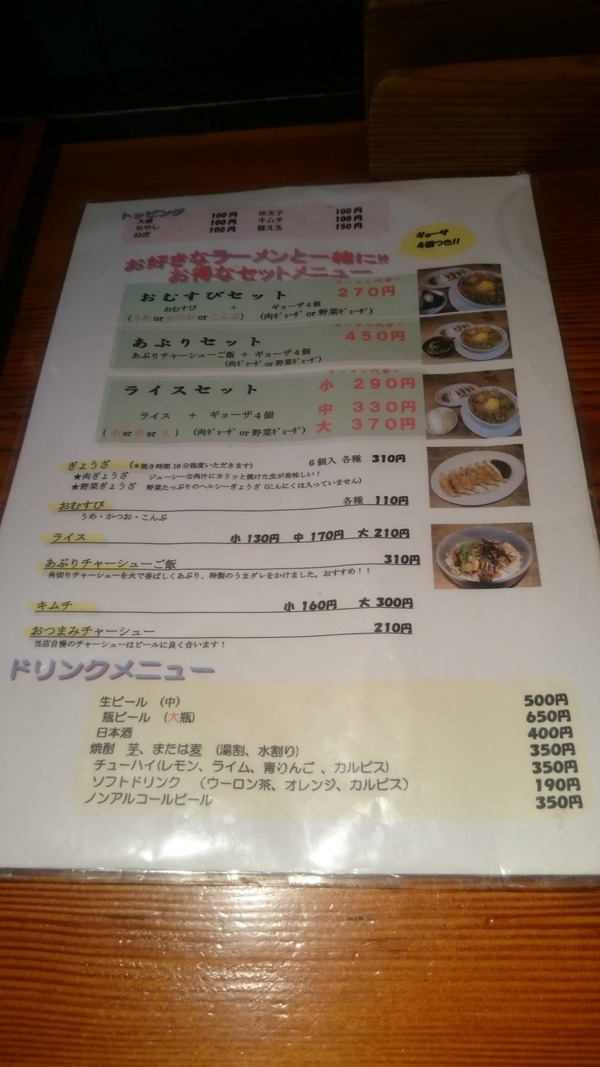 トッピング
大盛 100円 味玉子 100円
もやし 100円 キムチ 100円
ねぎ 100円 替え玉 150円
ギョーザ
4個つき!!
お好きなラーメンと一緒に
お得なセットメニュー
おむすびセット ラーメン代金+ 270円
おむすび + ギョーザ4個
(うめ or かつお or こんぶ) (肉ギョーザ or 野菜ギョーザ)
あぶりセット ラーメン代金+ 450円
あぶりチャーシューご飯 + ギョーザ4個
(肉ギョーザ or 野菜ギョーザ)
ライスセット ラーメン代金+ 小 290円
中 330円
ライス + ギョーザ4個
(小 or 中 or 大) (肉ギョーザ or 野菜ギョーザ) 大 370円
ぎょうざ (*焼き時間10分程度いただきます) 6個入 各種 310円
★肉ぎょうざ ジューシーな肉汁にカリッと焼けた皮が美味しい!
★野菜ぎょうざ 野菜たっぷりのヘルシーぎょうざ(にんにくは入っていません)
おむすび 各種 110円
うめ・かつお・こんぶ
ライス 小 130円 中 170円 大 210円
あぶりチャーシューご飯 310円
角切りチャーシューを火で香ばしくあぶり、特製のうまダレをかけました。おすすめ!!
キムチ 小 160円 大 300円
おつまみチャーシュー 210円
当店自慢のチャーシューはビールに良く合います!
ドリンクメニュー
生ビール (中) 500円
瓶ビール (大瓶) 650円
日本酒 400円
焼酎 芋、または麦 (湯割、水割り) 350円
チューハイ(レモン、ライム、青りんご、カルピス) 350円
ソフトドリンク (ウーロン茶、オレンジ、カルピス) 190円
ノンアルコールビール 350円